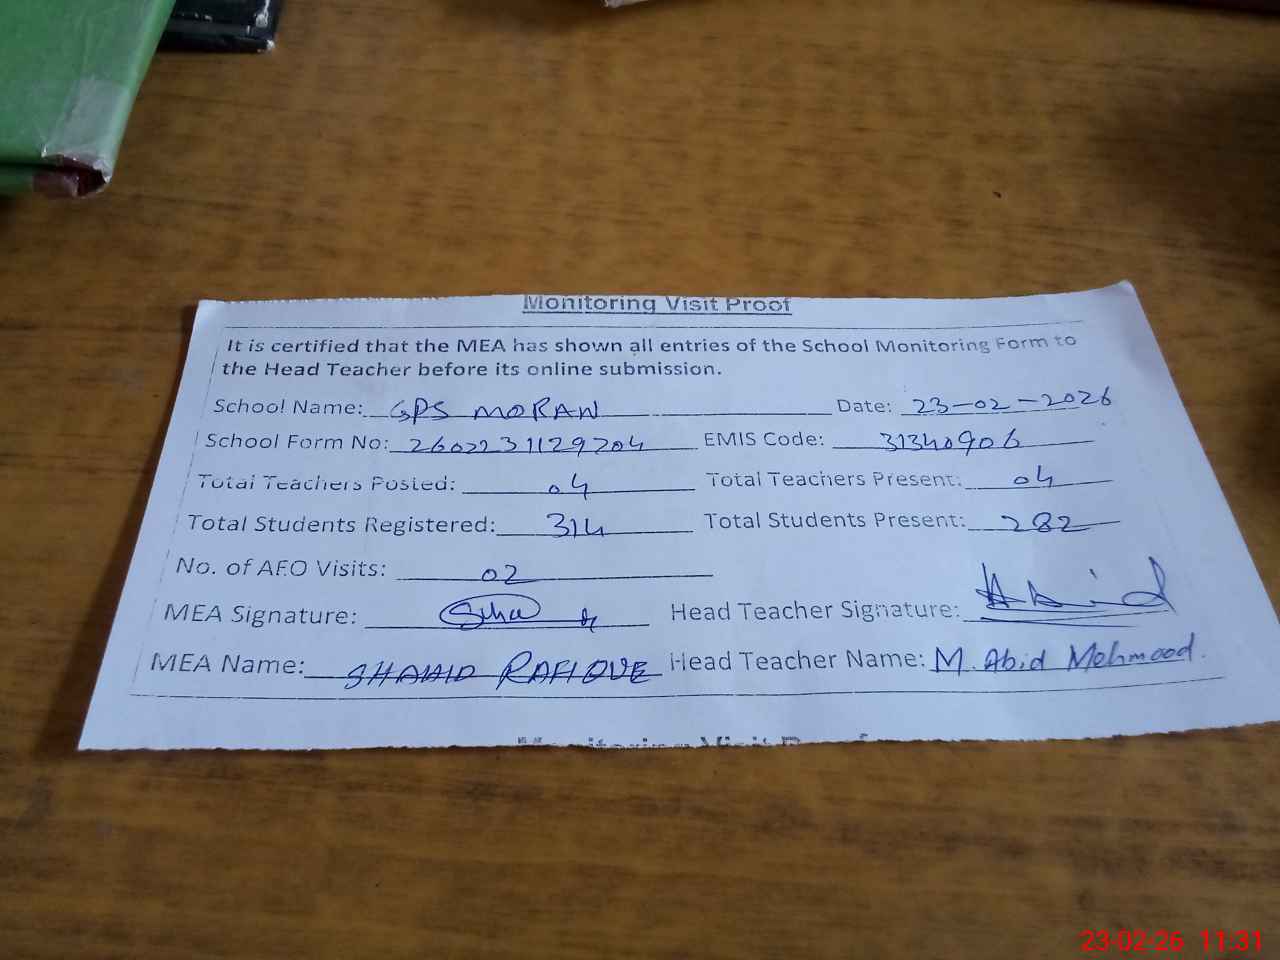 Monitoring Visit Proof
It is certified that the MEA has shown all entries of the School Monitoring Form to
the Head Teacher before its online submission.
School Name: GPS MORAN Date: 23-02-2026
School Form No: 2602231129204 EMIS Code: 31340906
Total Teachers Posted: 04 Total Teachers Present: 04
Total Students Registered: 314 Total Students Present: 282
No. of AEO Visits: 02
MEA Signature: Head Teacher Signature: Abid
MEA Name: SHAHID RAFIQUE Head Teacher Name: M. Abid Mehmood.
Monitoring Visit Proof
23-02-26 11:31